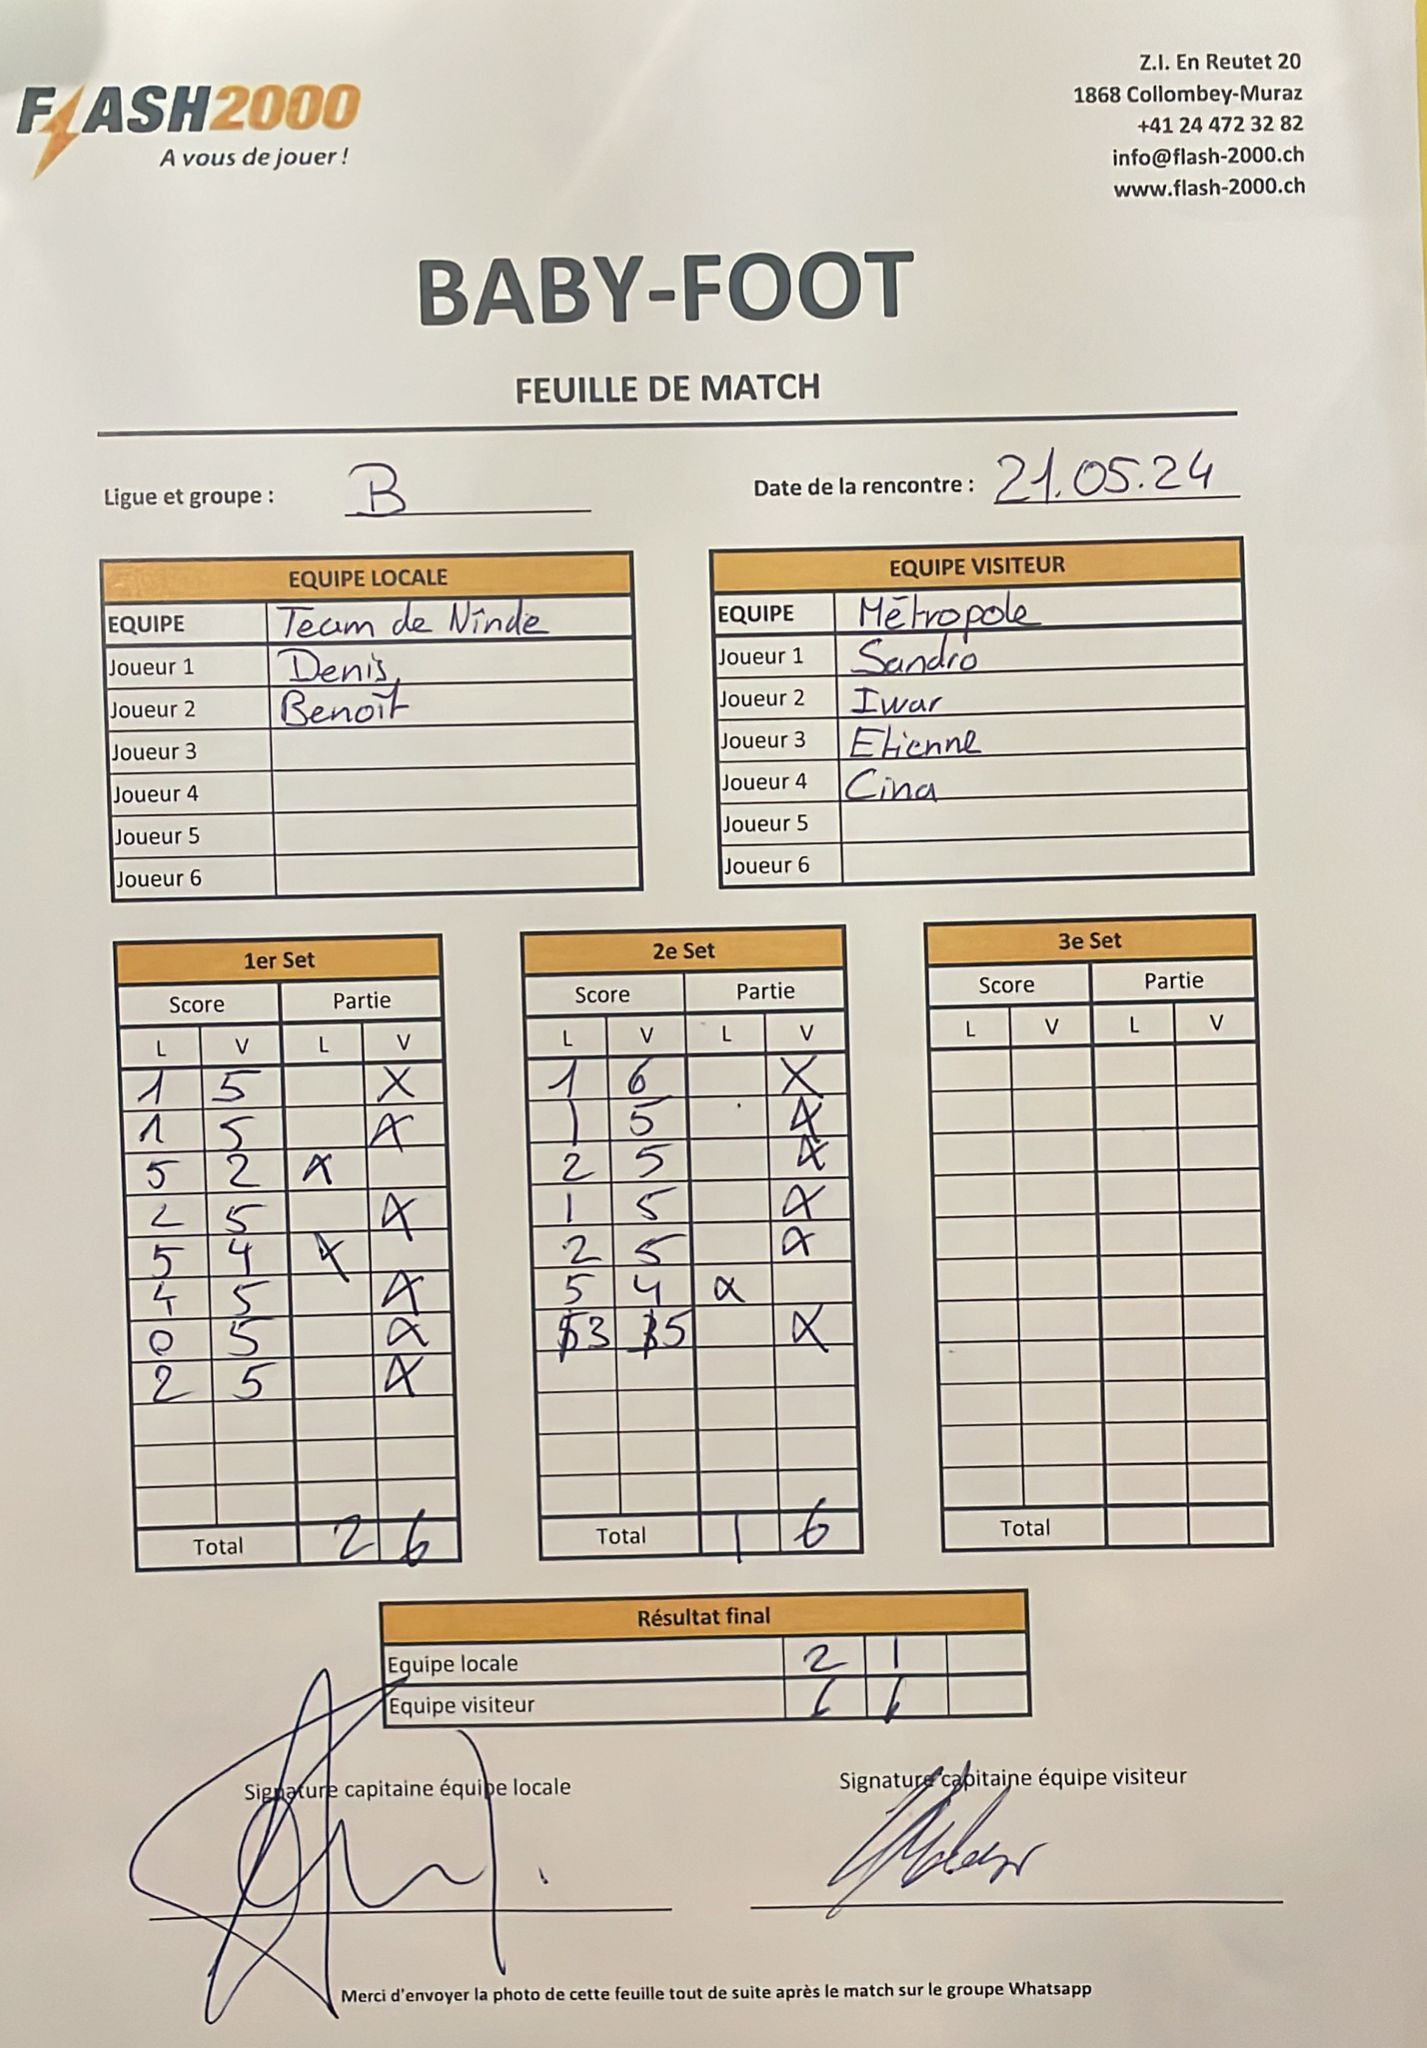 FLASH2000
A vous de jouer !
Z.I. En Reutet 20
1868 Collombey-Muraz
+41 24 472 32 82
info@flash-2000.ch
www.flash-2000.ch
BABY-FOOT
FEUILLE DE MATCH
Ligue et groupe : B
Date de la rencontre : 21.05.24
EQUIPE LOCALE
EQUIPE Team de Ninde
Joueur 1 Denis
Joueur 2 Benoît
Joueur 3
Joueur 4
Joueur 5
Joueur 6
EQUIPE VISITEUR
EQUIPE Métropole
Joueur 1 Sandro
Joueur 2 Iwar
Joueur 3 Etienne
Joueur 4 Cina
Joueur 5
Joueur 6
1er Set
Score Partie
L V L V
1 5 X
1 5 X
5 2 X
2 5 X
5 4 X
4 5 X
0 5 X
2 5 X
Total 2 6
2e Set
Score Partie
L V L V
1 6 X
1 5 X
2 5 X
1 5 X
2 5 X
5 4 X
3 5 X
Total 1 6
3e Set
Score Partie
L V L V
Total
Résultat final
Equipe locale 2 1
Equipe visiteur 6 6
Signature capitaine équipe locale
Signature capitaine équipe visiteur
Merci d'envoyer la photo de cette feuille tout de suite après le match sur le groupe Whatsapp